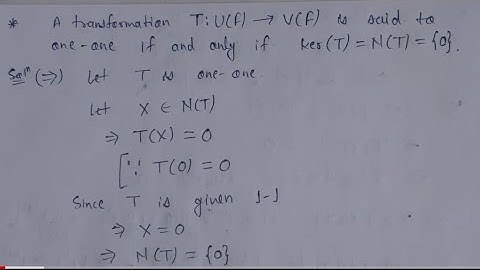 * A transformation T: U(F) → V(F) is said to
one-one if and only if ker(T) = N(T) = {0}.
Solⁿ (⇒) Let T is one-one.
Let X ∈ N(T)
⇒ T(X) = 0
[∵ T(0) = 0
Since T is given 1-1
⇒ X = 0
⇒ N(T) = {0}